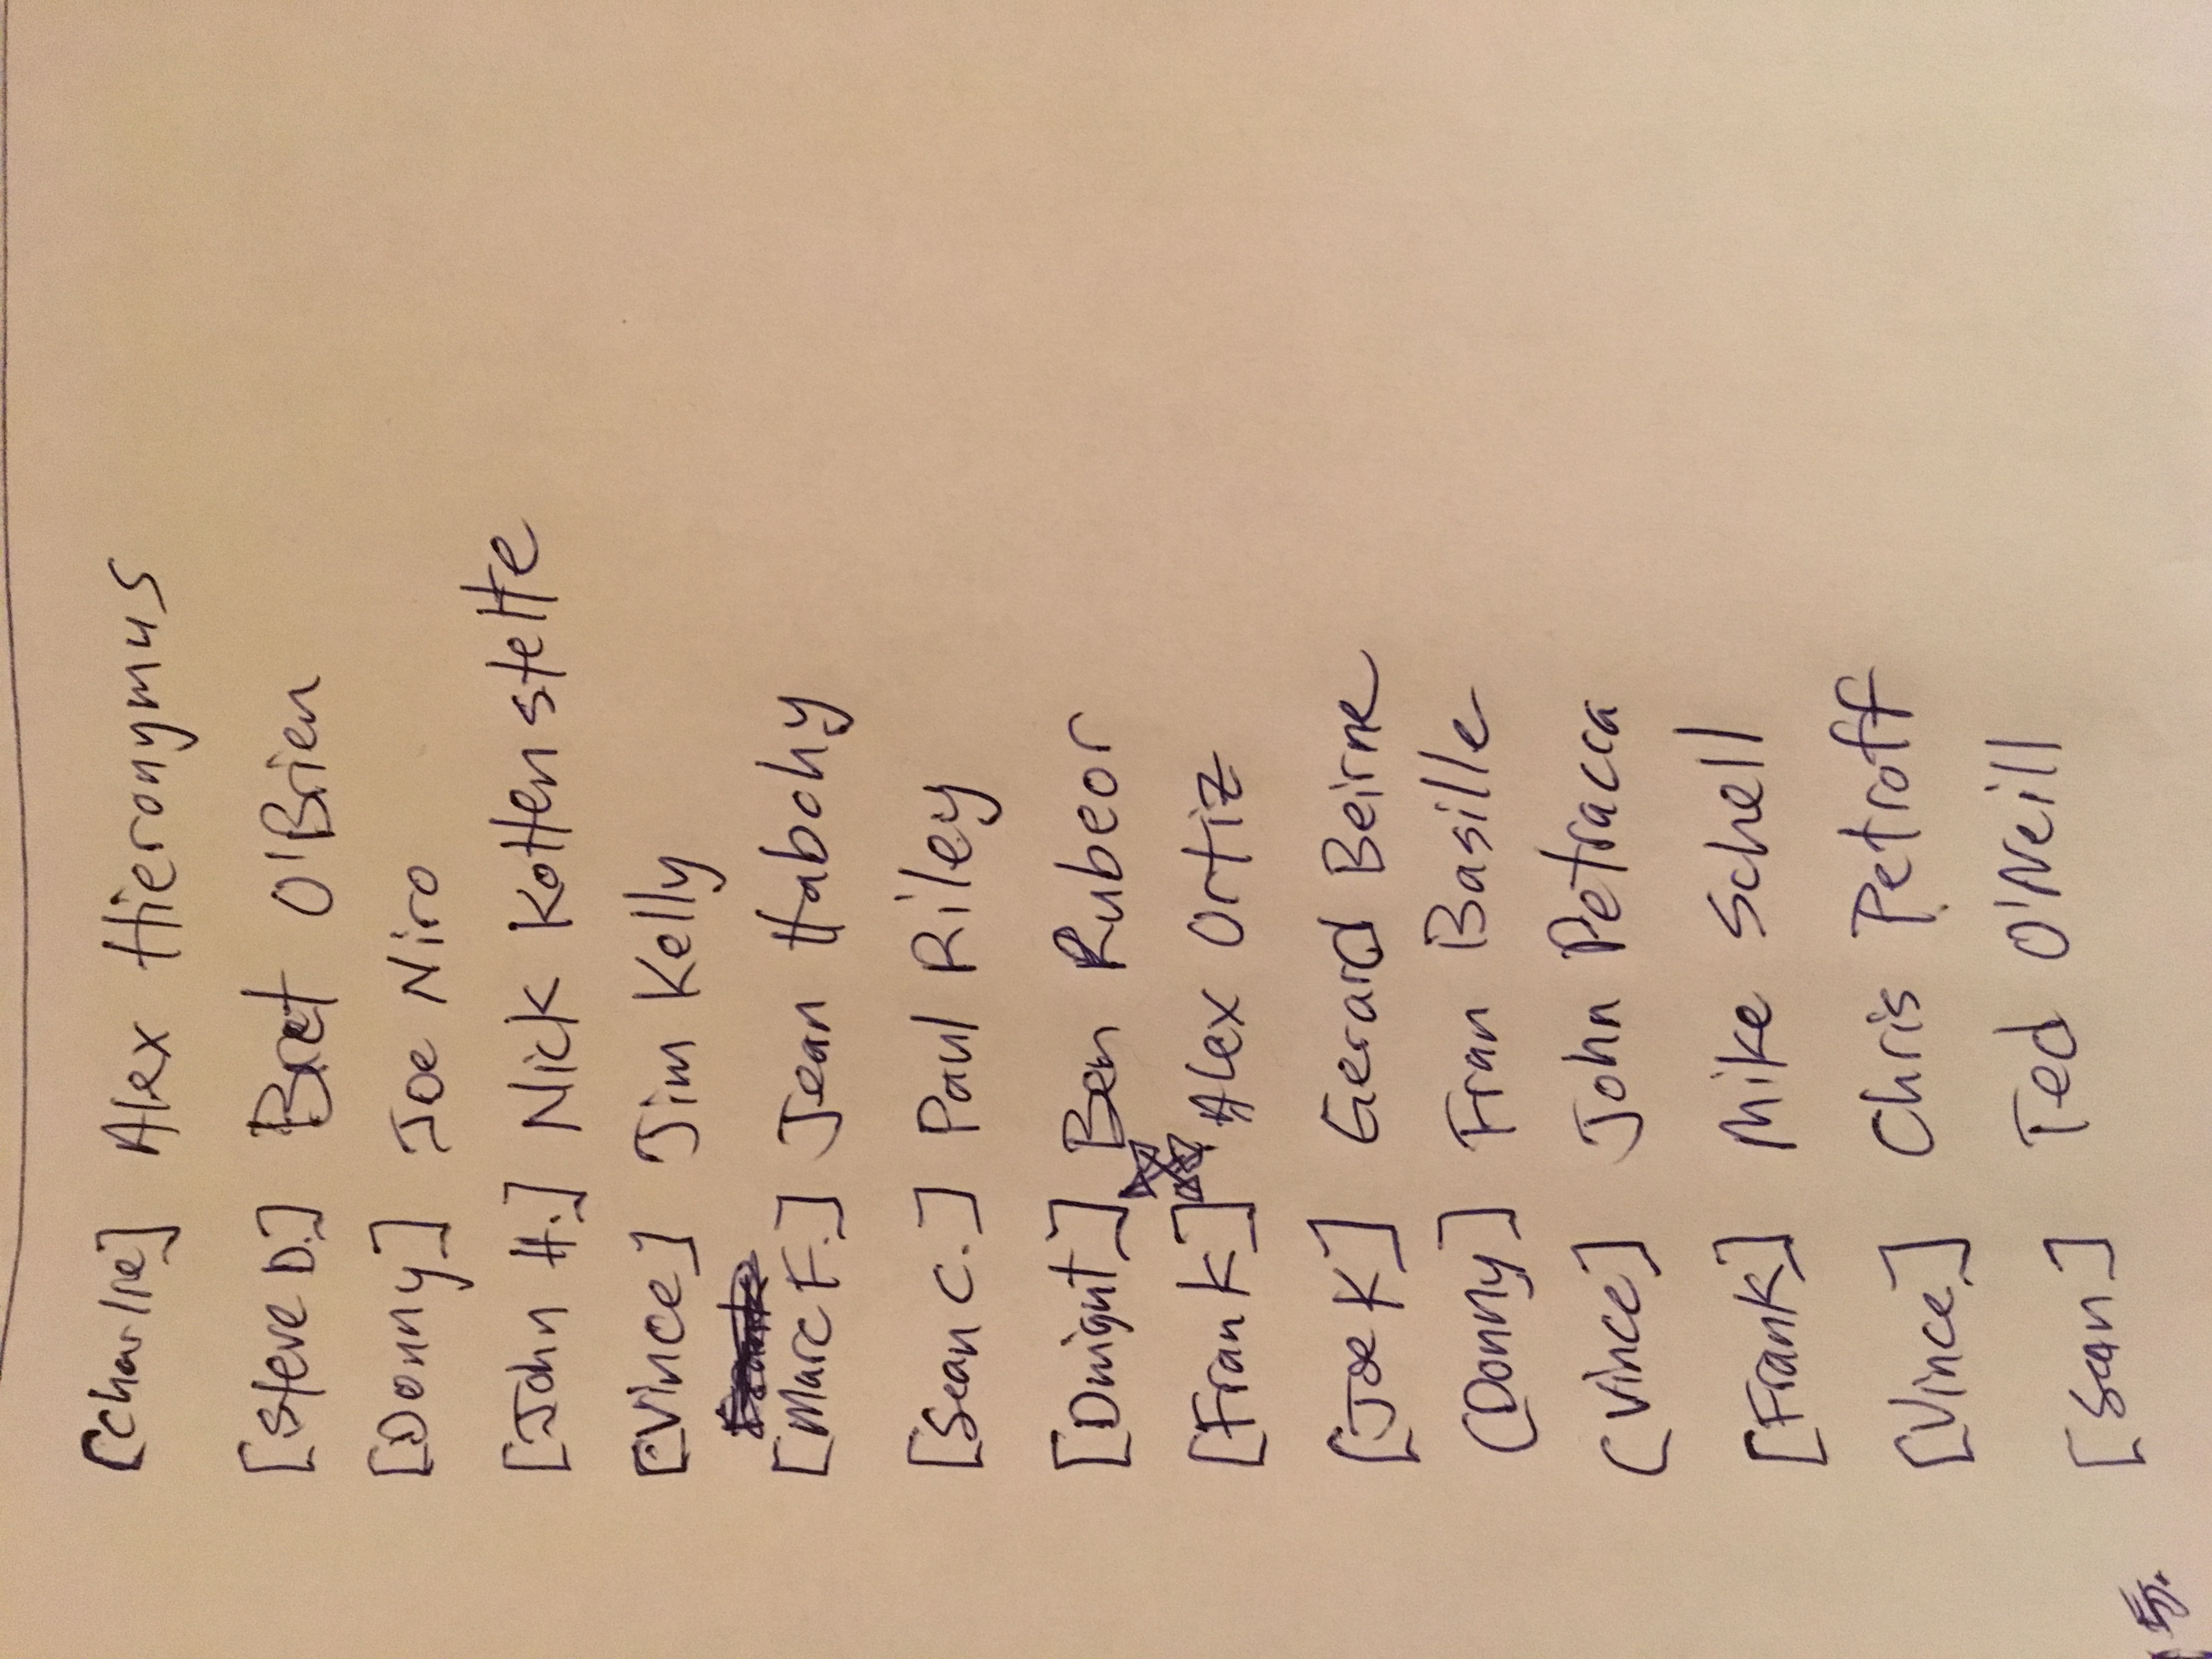 [Charlie] Alex Hieronymus
[Steve D.] Bret O'Brien
[Donny] Joe Niro
[John H.] Nick Kottenstette
[Vince] Jim Kelly
[Marc F.] Jean Habohy
[Sean C.] Paul Riley
[Dwight] Ben Rubeor
[Frank] Alex Ortiz
[Joe K] Gerard Beirne
(Donny] Fran Basille
(Vince] John Petracca
[Frank] Mike Schell
[Vince] Chris Petroff
[Sean] Ted O'Neill